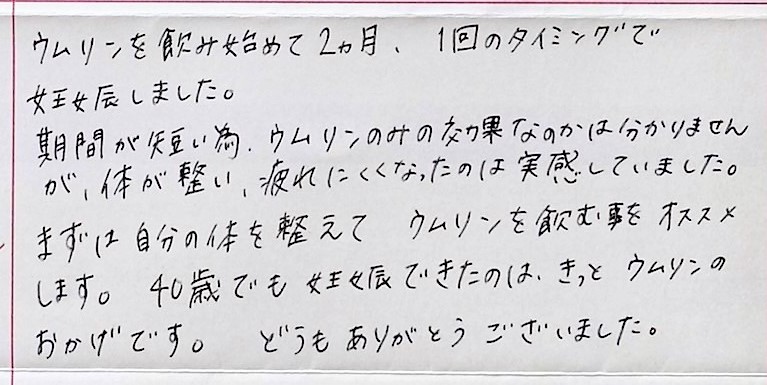 ウムリンを飲み始めて2ヵ月、1回のタイミングで
妊娠しました。
期間が短い為、ウムリンのみの効果なのかは分かりません
が、体が整い、疲れにくくなったのは実感していました。
まずは自分の体を整えて ウムリンを飲む事をオススメ
します。 40歳でも妊娠できたのは、きっとウムリンの
おかげです。 どうもありがとうございました。